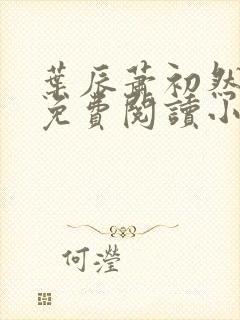 葉辰蕭初然
免費閱讀小
何瀅